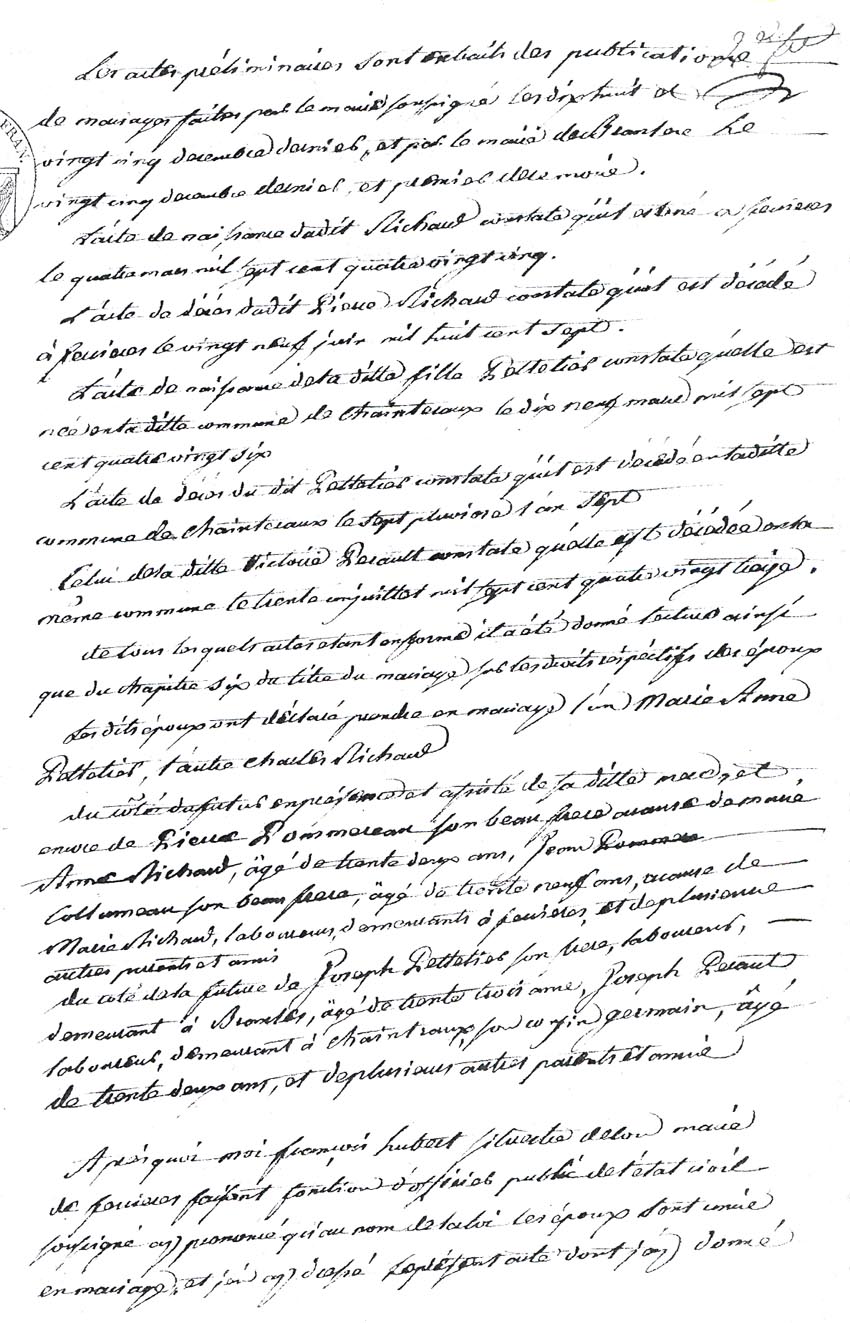 Les actes préliminaires sont extraits des publications
de mariages faites par le maire soussigné les dix huit et
vingt cinq decembre dernier, et par le maire de Bransles le
vingt cinq decembre dernier, et premier de ce mois.
L'acte de naissance dudit Richaud constate qu'il est né a ferrieres
le quatre mars mil sept cent quatre vingt cinq.
L'acte de décès dudit Pierre Richaud constate qu'il est décédé
à ferrieres le vingt neuf juin mil huit cent sept.
L'acte de naissance de la ditte fille Pelletier constate qu'elle est
née en la ditte commune de Chaintreaux le dix neuf mars mil sept
cent quatre vingt six
L'acte de décès du dit Pelletier constate qu'il est décédé en la ditte
commune de Chaintreaux le sept pluviose l'an sept
Celui de la ditte Victoire Perault constate qu'elle est décédée en la
même commune le trente un juillet mil sept cent quatre vingt treize.
de tous lesquels actes etant en forme il a été donné lecture ainsi
que du chapitre six du titre du mariage sur les droits respectifs des époux
Les dits époux ont déclaré prendre en mariage l'un Marie Anne
Pelletier, l'autre Charles Richaud
du côté du futur en présence et assisté de sa ditte mere, et
encore de Pierre Pommereau son beau frere a cause de marie
Anne Richaud, âgé de trente deux ans, Jean Pommere
Collumeau son beau frere, âgé de trente neuf ans, a cause de
Marie Richaud, laboureurs, demeurants à ferrieres, et de plusieurs
autres parents et amis
du coté de la future de Joseph Pelletier son frere, laboureur,
demeurant à Bransles, âgé de trente trois ans, Joseph Perault
laboureur, demeurant à Chaintreaux, son cousin germain, âgé
de trente deux ans, et de plusieurs autres parents et amis
Après quoi moi françois hubert maire
de ferrieres faisant fonction d'officier public de l'état civil
soussigné ay prononcé qu'au nom de la loi les époux sont unis
en mariage, et j'en ay dressé le présent acte dont j'ay donné
FRAN.